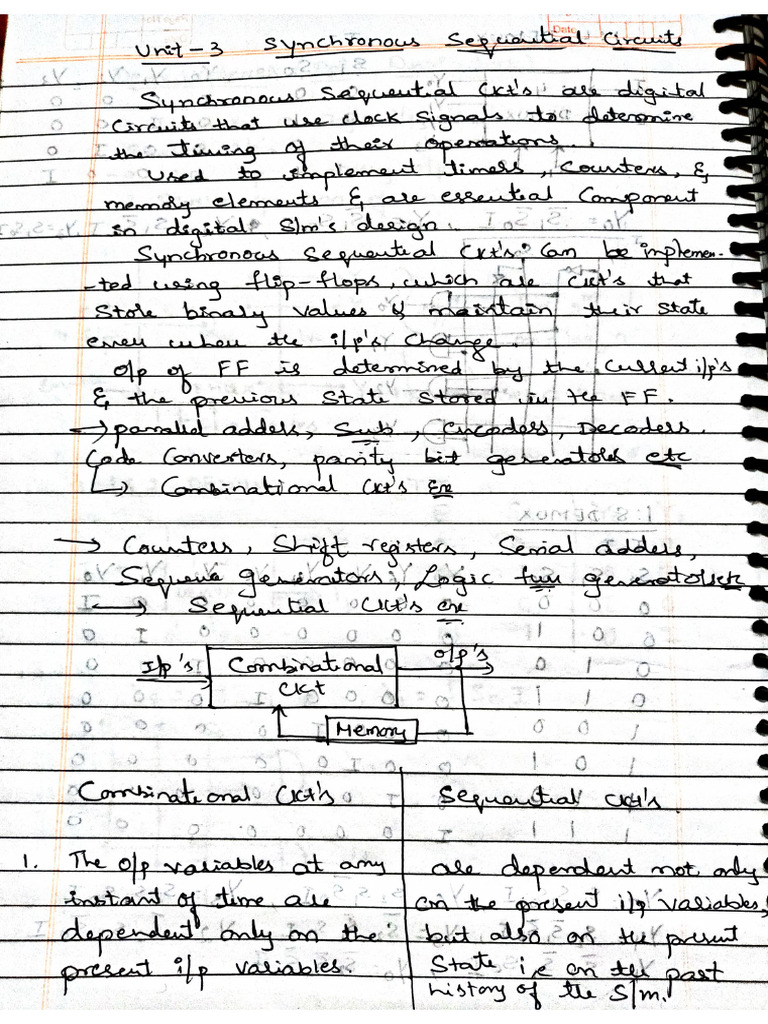 Unit-3 Synchronous Sequential Circuits
Synchronous Sequential Ckt's are digital
Circuits that use clock signals to determine
the timing of their operations.
Used to implement timers, Counters, &
memory elements & are essential Component
in digital S/m's design.
Synchronous Sequential Ckt's Can be implemen-
-ted using flip-flops, which are Ckt's that
Store binary values & maintain their State
even when the i/p's change.
O/p of FF is determined by the Current i/p's
& the previous State Stored in the FF.
→ parallel adders, Sub, Encoders, Decoders.
Code Converters, parity bit generators etc
↳ Combinational Ckt's Ex
→ Counters, Shift registers, Serial adders,
Sequence generators, Logic fun generators etc
→ Sequential Ckt's Ex
I/p's Combinational O/p's
Ckt
Memory
Combinational Ckt's Sequential Ckt's
1. The O/p variables at any are dependent not only
instant of time are on the present i/p variables,
dependent only on the but also on the present
present i/p variables. State i.e on the past
history of the S/m.